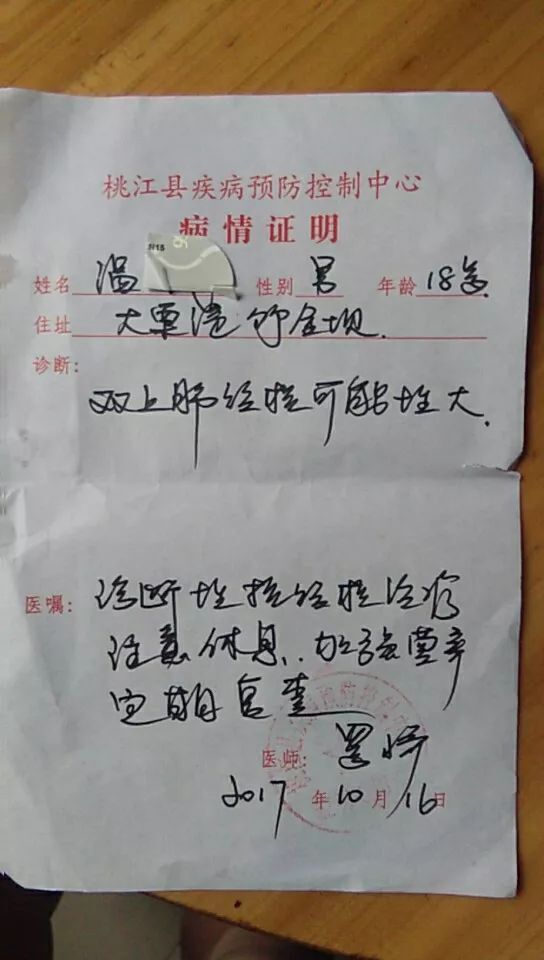 桃江县疾病预防控制中心
病情证明
姓名 温 性别 男 年龄 18岁
住址 大栗港竹金坝.
诊断:
双上肺结核可能性大.
医嘱: 诊断性抗结核治疗
注意休息、加强营养
定期复查
医师: 罗
2017年10月16日